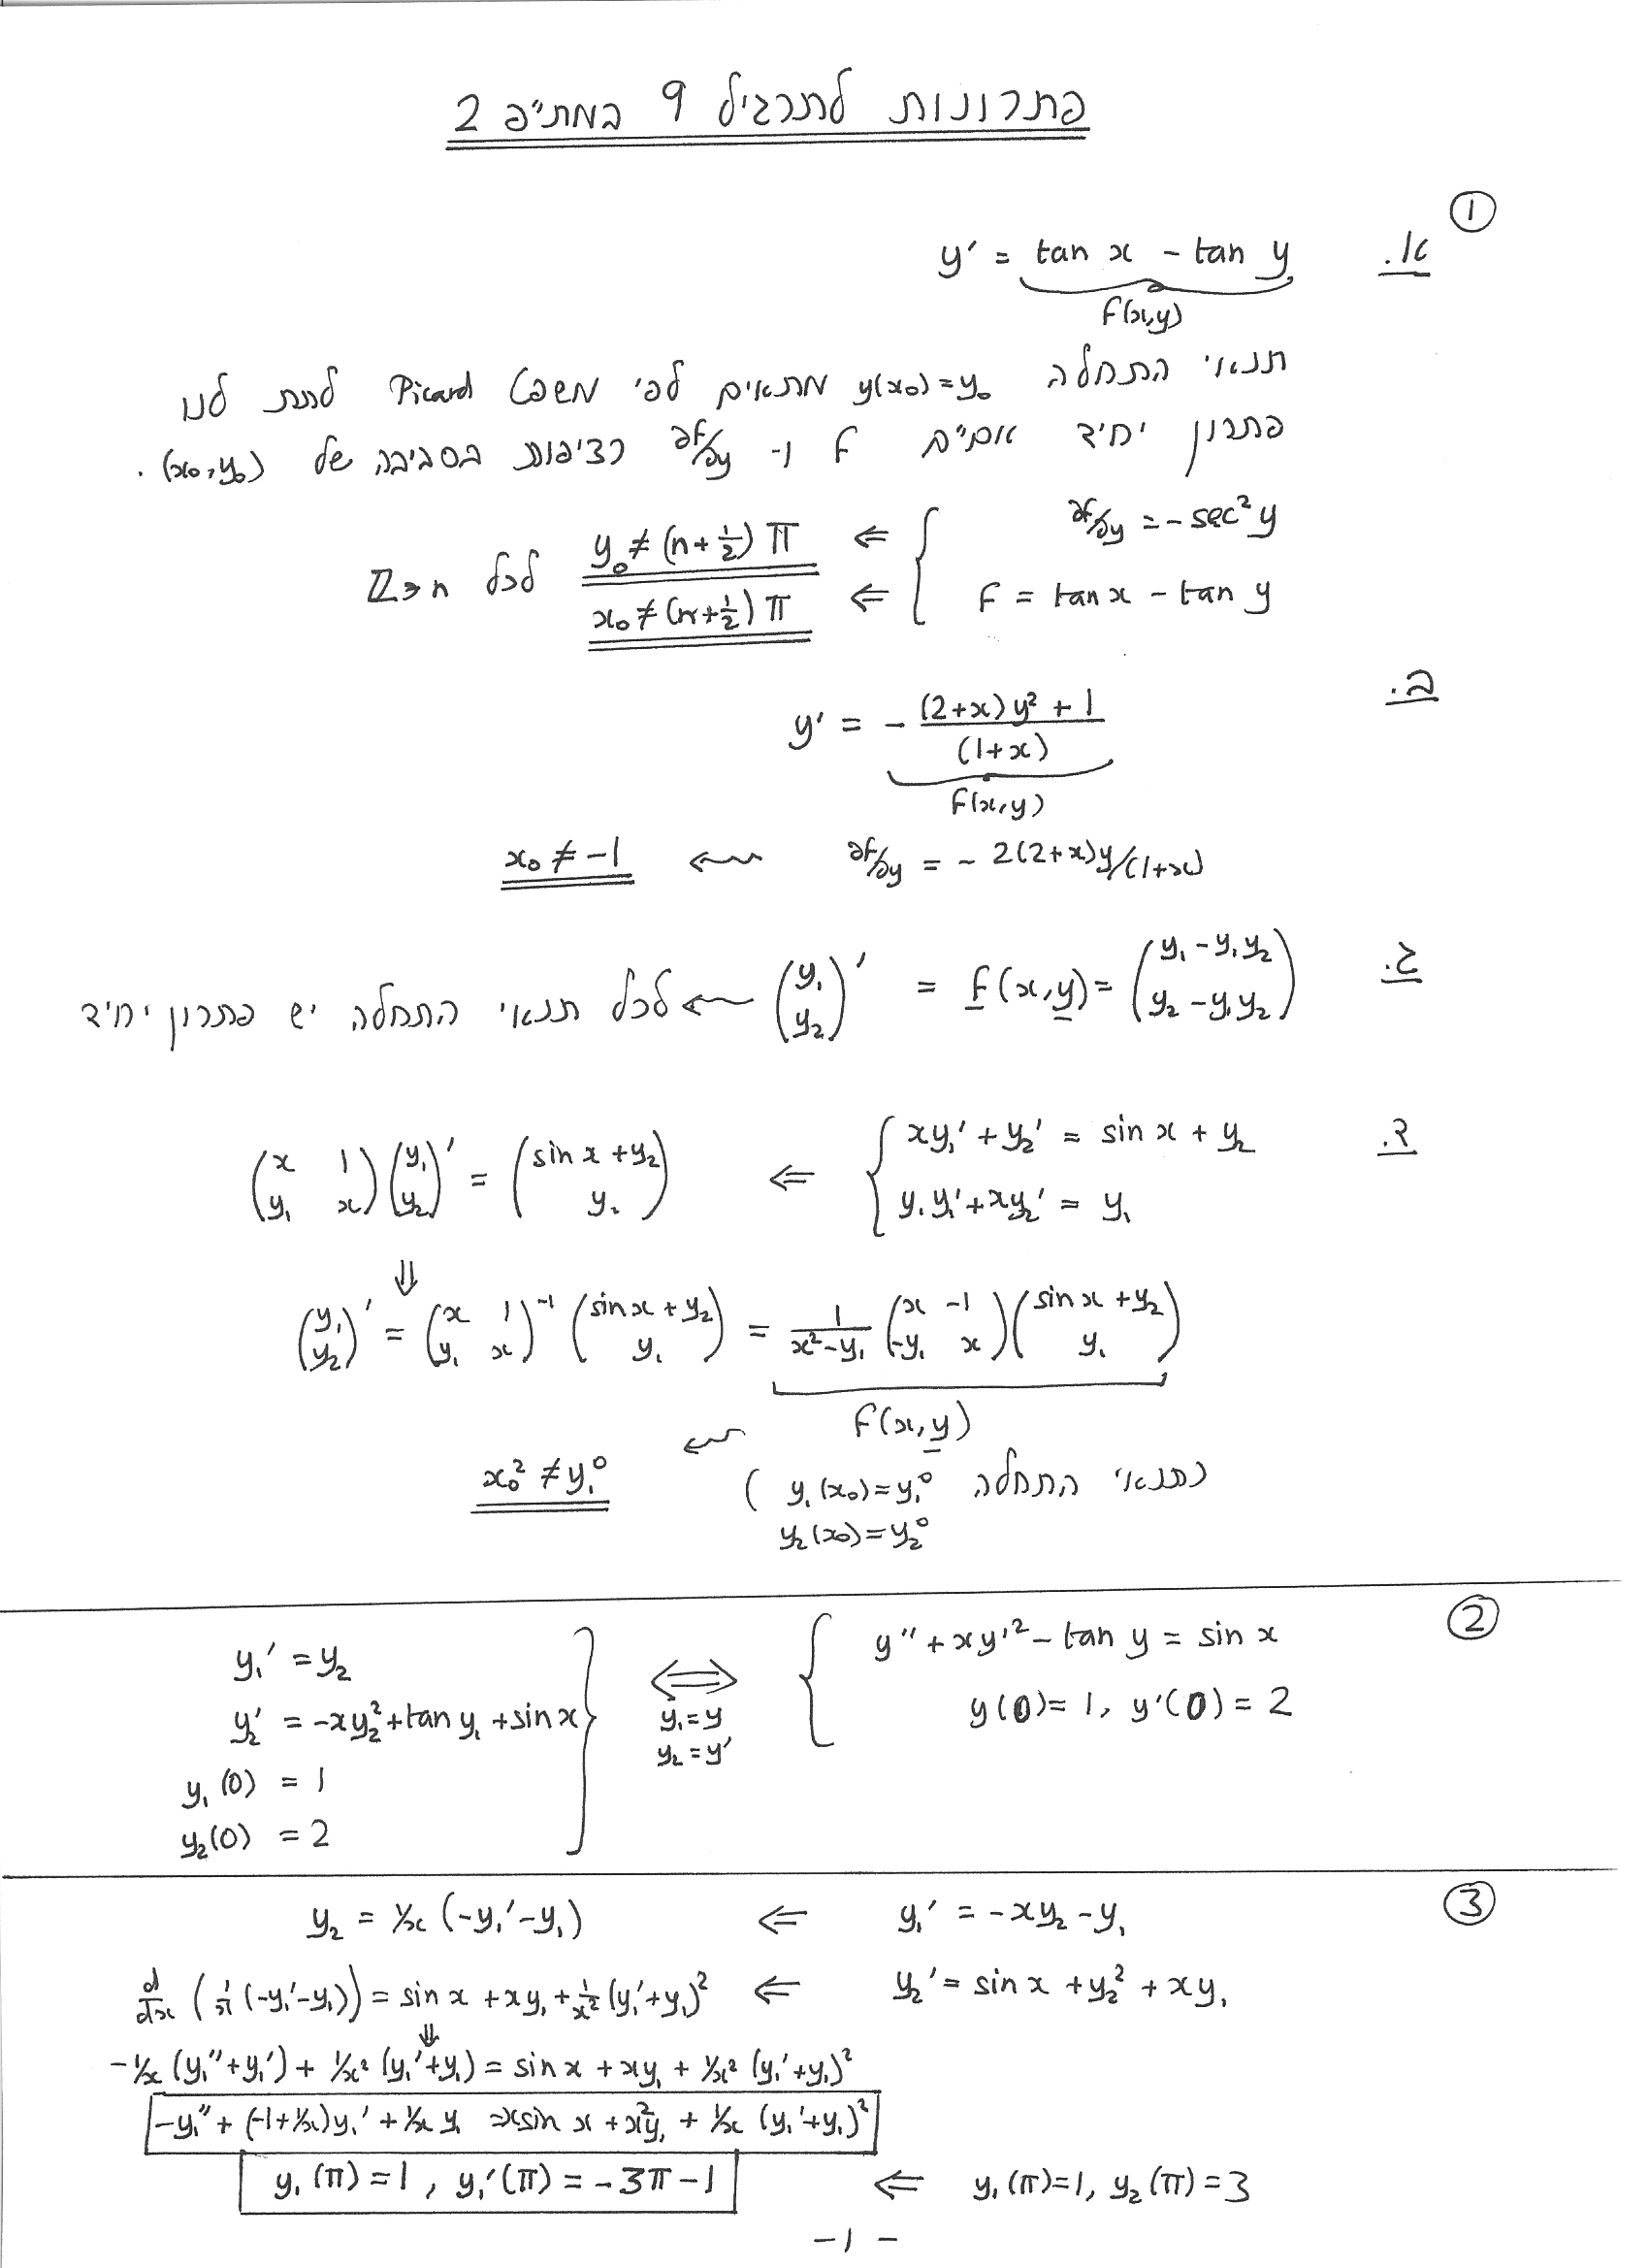 פתרונות לתרגיל 9 במת"פ 2
①
א. y' = tan x - tan y
f(x,y)
תנאי התחלה y(x₀)=y₀ מתאים לפי משפט Picard לתת לנו
פתרון יחיד אם"ם f ו- ∂f/∂y רציפות בסביבה של (x₀,y₀).
∂f/∂y = -sec² y ⇐ y₀ ≠ (n+½)π
f = tan x - tan y ⇐ x₀ ≠ (n+½)π לכל n∈ℤ
ב. y' = - ((2+x)y² + 1)/(1+x)
f(x,y)
∂f/∂y = - 2(2+x)y/(1+x) ⟵ x₀ ≠ -1
ג. (y₁ y₂)' = f(x,y) = (y₁ - y₁y₂ y₂ - y₁y₂) ⟵ לכל תנאי התחלה יש פתרון יחיד
ד. { xy₁' + y₂' = sin x + y₂
y₁y₁' + xy₂' = y₁ ⇐ (x 1 y₁ x)(y₁ y₂)' = (sin x + y₂ y₁)
⇓
(y₁ y₂)' = (x 1 y₁ x)⁻¹ (sin x + y₂ y₁) = 1/(x²-y₁) (x -1 -y₁ x)(sin x + y₂ y₁)
f(x,y)
(תנאי התחלה y₁(x₀)=y₁⁰ ⟵ x₀² ≠ y₁⁰
y₂(x₀)=y₂⁰)
②
y'' + xy'² - tan y = sin x
y(0)=1, y'(0)=2
⟺
y₁=y
y₂=y'
y₁' = y₂
y₂' = -xy₂² + tan y₁ + sin x
y₁(0) = 1
y₂(0) = 2
③
y₁' = -xy₂ - y₁ ⇐ y₂ = 1/x (-y₁'-y₁)
y₂' = sin x + y₂² + xy₁ ⇐ d/dx (1/x (-y₁'-y₁)) = sin x + xy₁ + 1/x² (y₁'+y₁)²
⇓
-1/x (y₁''+y₁') + 1/x² (y₁'+y₁) = sin x + xy₁ + 1/x² (y₁'+y₁)²
-y₁'' + (-1+1/x)y₁' + 1/x y₁ = x sin x + x²y₁ + 1/x (y₁'+y₁)²
y₁(π)=1, y₂(π)=3 ⇐ y₁(π)=1, y₁'(π) = -3π-1
-1-